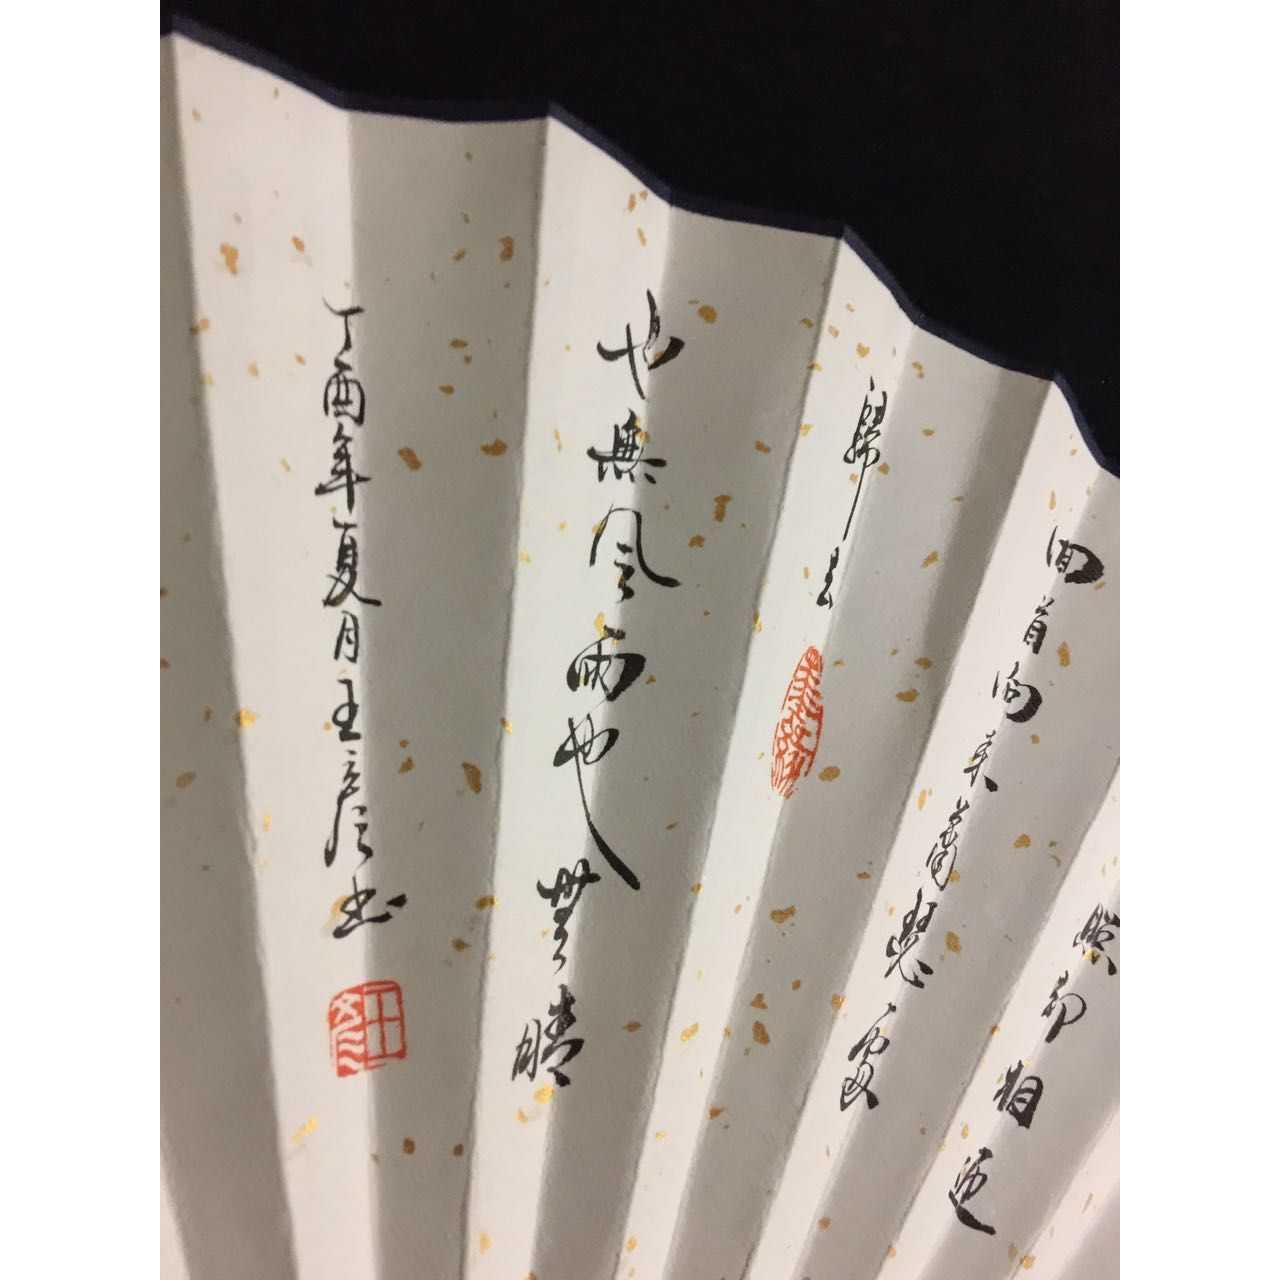 照却相迎
回首向来蕭瑟處
歸去
也無風雨也無晴
丁酉年夏月王彦江书